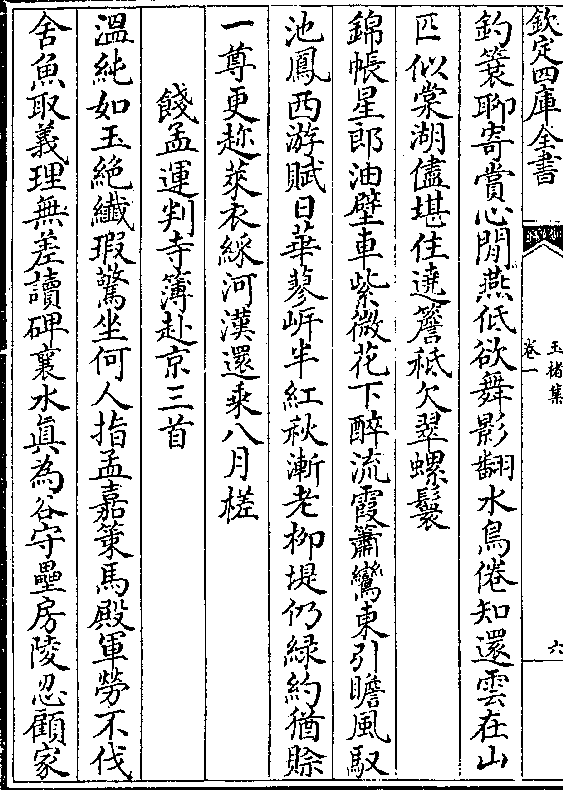 欽定四庫全書
玉楮集
卷一
六
釣簑聊寄賞心閒燕低欲舞影翻水鳥倦知還雲在山
匹似棠湖儘堪住遶簷秪欠翠螺鬟
錦帳星郎油壁車紫微花下醉流霞簫鸞東引瞻風馭
池鳳西游賦日華蓼岍半紅秋漸老柳堤仍緑約猶賒
一尊更趂萊衣綵河漢還乘八月槎
餞孟運判寺簿赴京三首
溫純如玉絶纎瑕驚坐何人指孟嘉策馬殿軍勞不伐
舍魚取義理無差讀碑襄水真為谷守壘房陵忍顧家